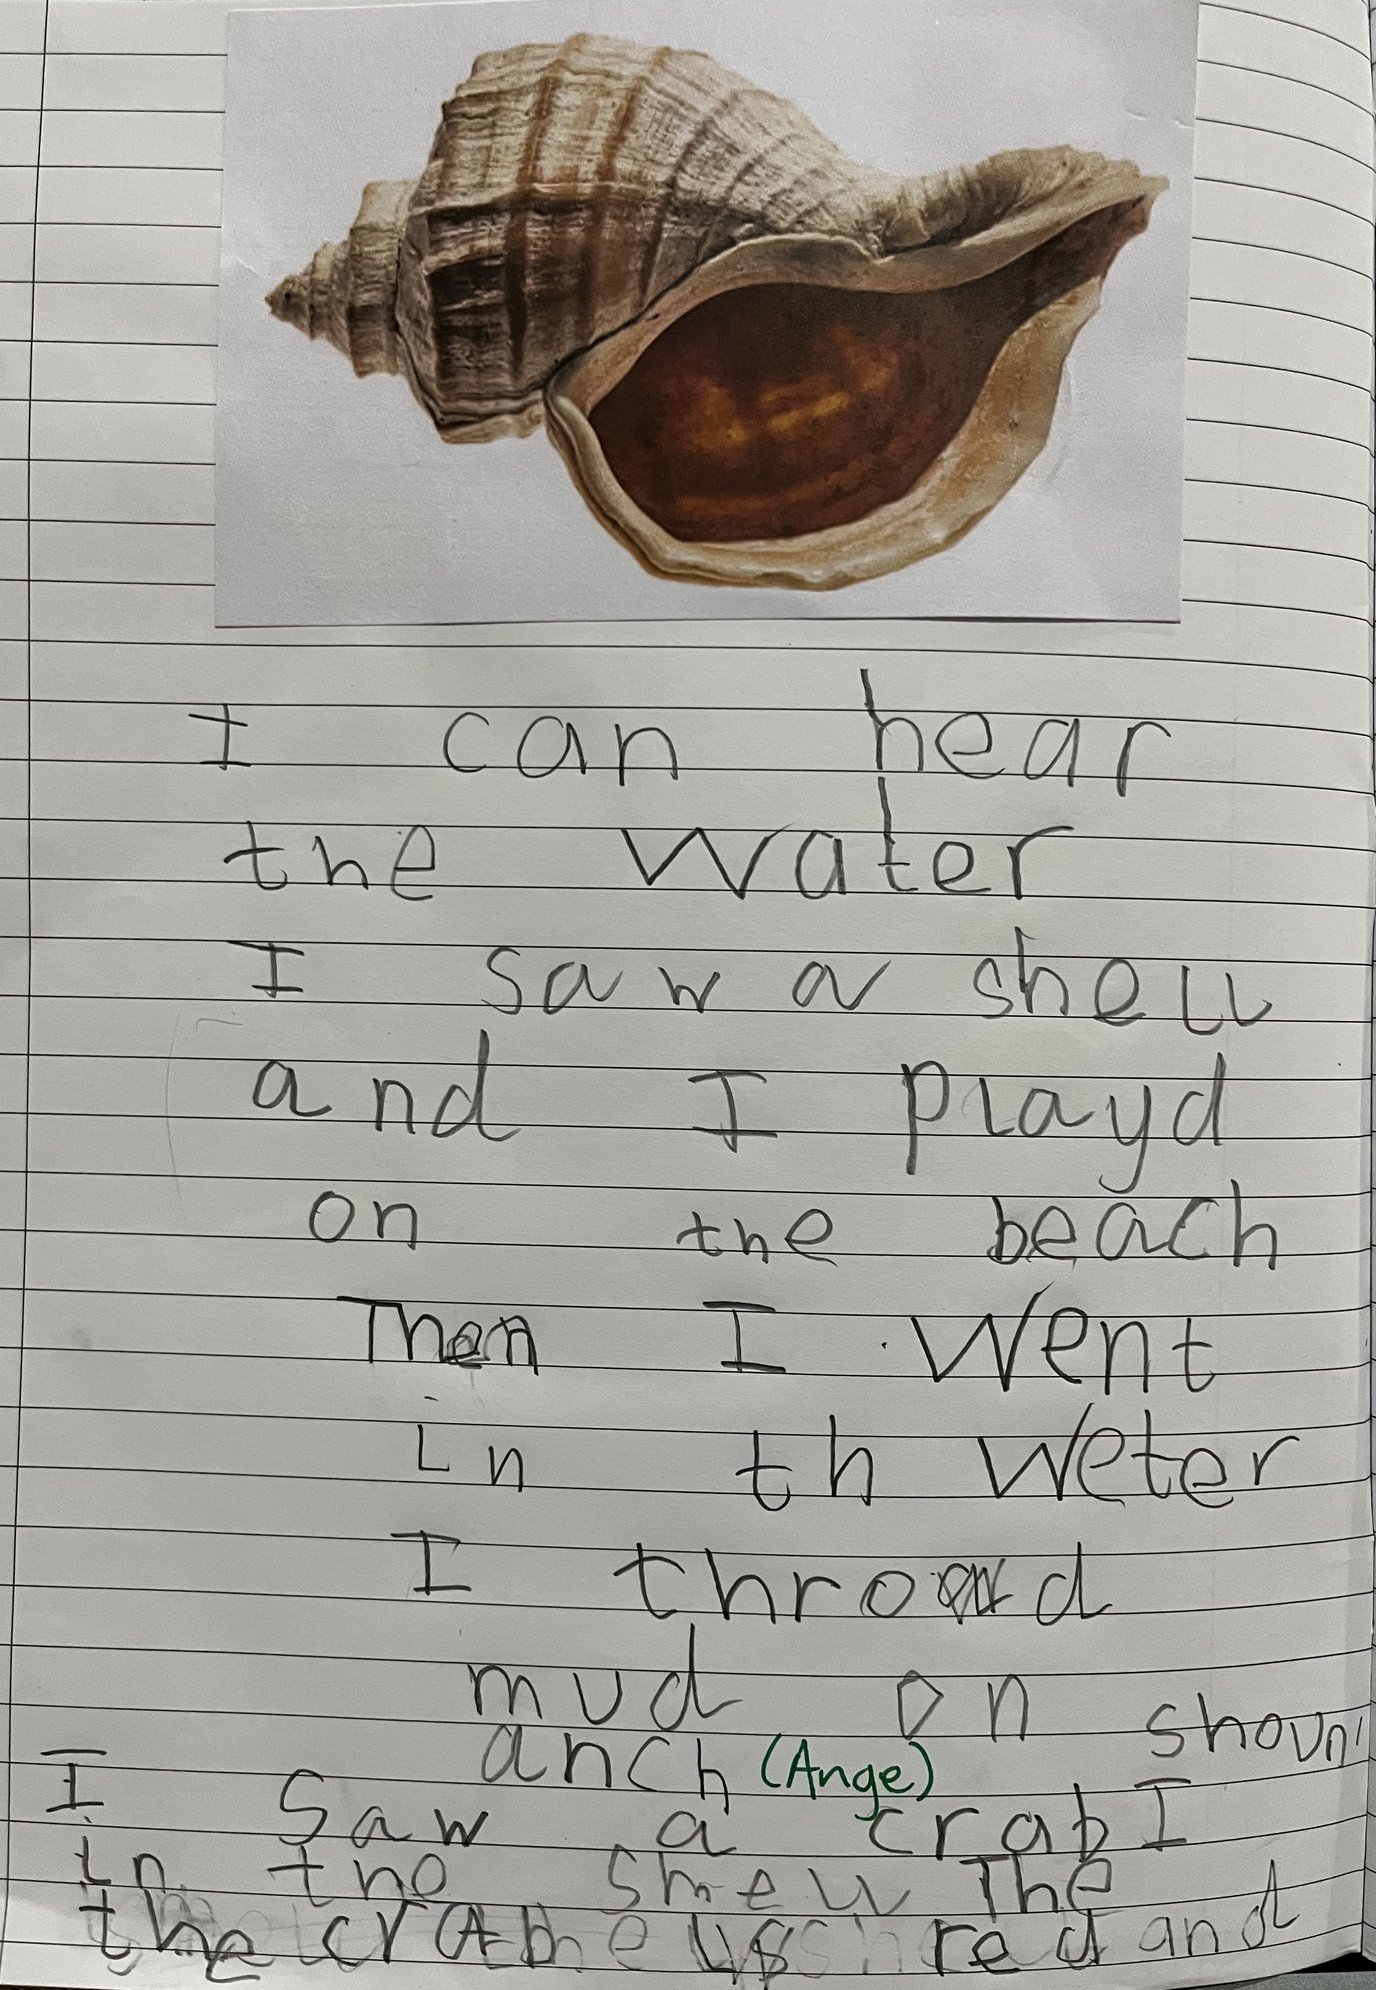 I can hear
the water
I saw a shell
and I playd
on the beach
Then I went
in th weter
I throd
mud on shoun
anch (Ange)
I saw a crab I
in the shell The
the crab is red and